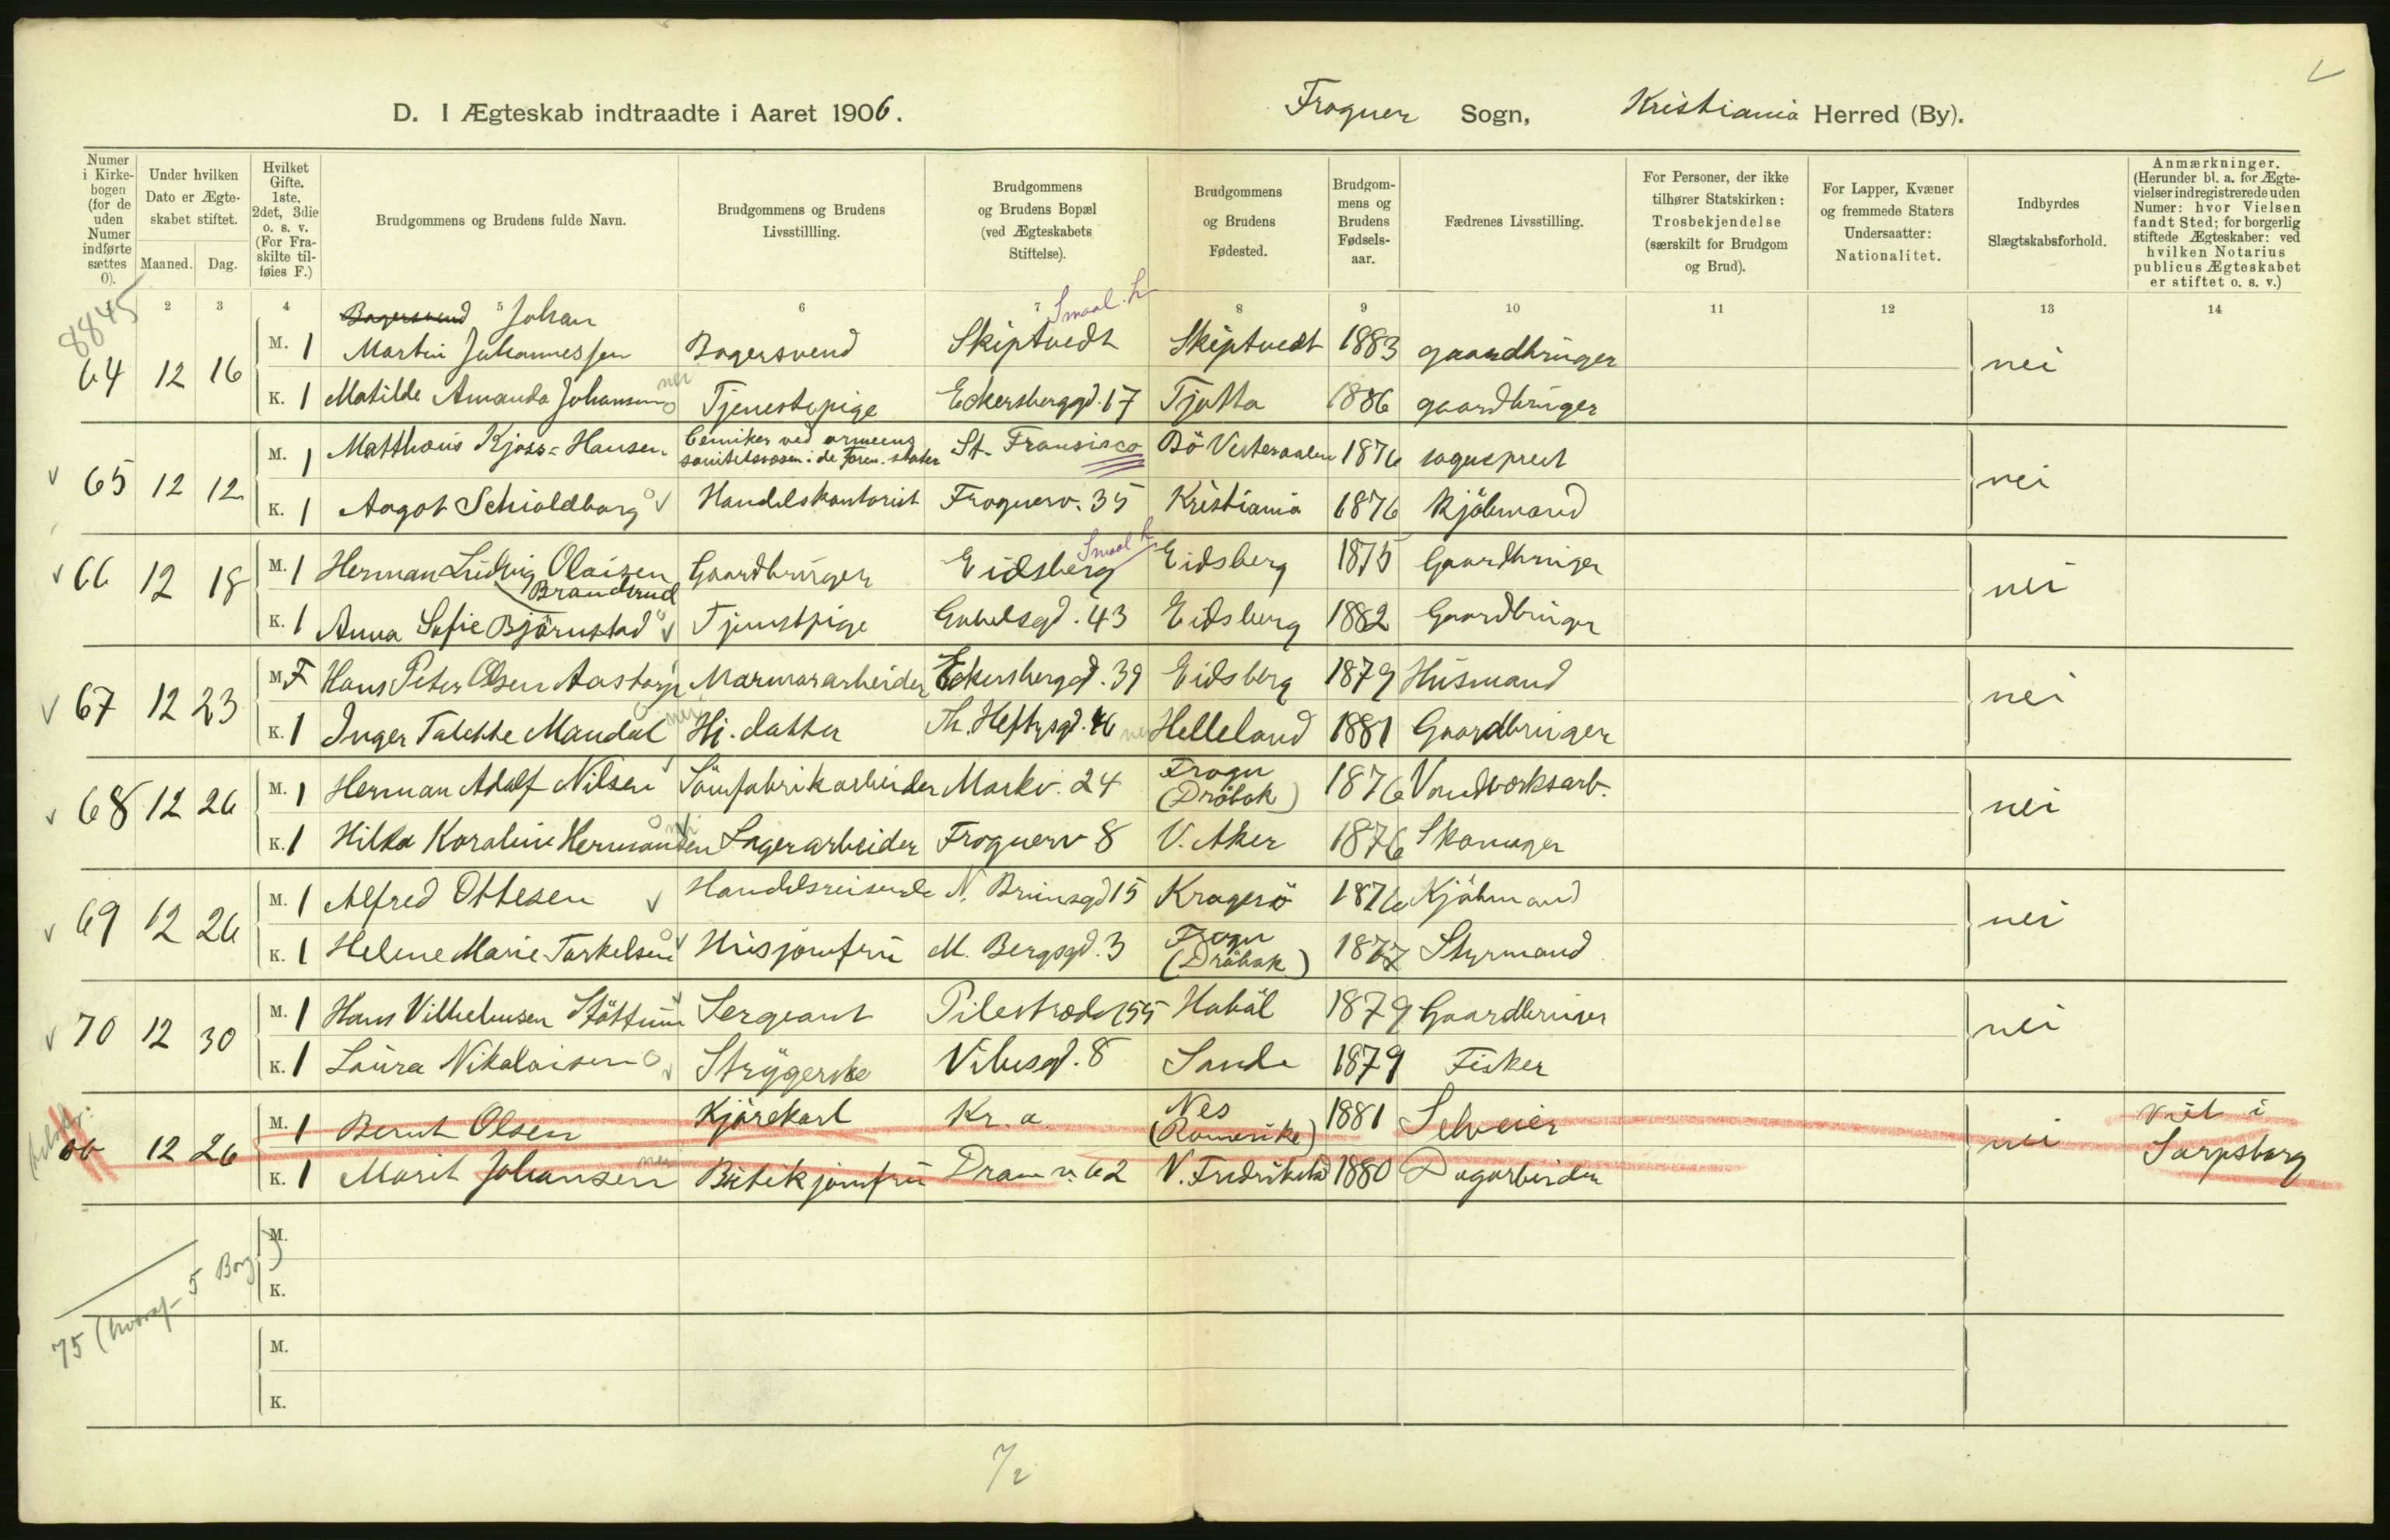 D. I Ægteskab indtraadte i Aaret 1906.
Frogner Sogn, Kristiania Herred (By).
Numer i Kirkebogen (for de uden Numer indførte sættes 0).
Under hvilken Dato er Ægteskabet stiftet.
Maaned. Dag.
Hvilket Gifte. 1ste, 2det, 3die o. s. v. (For Fraskilte tilføies F.)
Brudgommens og Brudens fulde Navn.
Brudgommens og Brudens Livsstillling.
Brudgommens og Brudens Bopæl (ved Ægteskabets Stiftelse).
Brudgommens og Brudens Fødested.
Brudgommens og Brudens Fødselsaar.
Fædrenes Livsstilling.
For Personer, der ikke tilhører Statskirken: Trosbekjendelse (særskilt for Brudgom og Brud).
For Lapper, Kvæner og fremmede Staters Undersaatter: Nationalitet.
Indbyrdes Slægtskabsforhold.
Anmærkninger. (Herunder bl. a. for Ægtevielser indregistrerede uden Numer: hvor Vielsen fandt Sted; for borgerlig stiftede Ægteskaber: ved hvilken Notarius publicus Ægteskabet er stiftet o. s. v.)
2 3 4 5 6 7 8 9 10 11 12 13 14
8845
Bagersvend Johan Smaal. L
64 12 16 M. 1 Martin Johannessen Bagersvend Skiptvedt Skiptvedt 1883 gaardbruger nei
K. 1 Matilde Amanda Johansen nei Tjenestepige Eckersberggd. 17 Tjøtta 1886 gaardbruger
65 12 12 M. 1 Matthæus Kjøss-Hansen Cemiker ved armeens sanitetsvæsen i de Foren. stater St. Fransisco Bö Vesteraalen 1876 sogneprest nei
K. 1 Aagot Schioldborg Handelskontorist Frognerv. 35 Kristiania 1876 Kjöbmand
66 12 18 M. 1 Herman Ludvig Olaisen Brandsrud Gaardbruger Eidsberg Smaal L Eidsberg 1875 Gaardbruger nei
K. 1 Anna Sofie Björnstad Tjenstpige Gabelsgd. 43 Eidsberg 1882 Gaardbruger
67 12 23 M. F Hans Peter Olsen Aastorp Marmorarbeider Eckersbergd. 39 Eidsberg 1879 Husmand nei
K. 1 Inger Talette Mandal nei Hj. datter Th. Heftysgd. 46 Helleland 1881 Gaardbruger
68 12 26 M. 1 Herman Adolf Nilsen Sömfabrikarbeider Markv. 24 Frogn (Dröbak) 1876 Vandværksarb. nei
K. 1 Hilda Karoline Hermansen Lagerarbeider Frognerv 8 V. Aker 1876 Skomager
69 12 26 M. 1 Alfred Ottesen Handelsreisende N. Brunsgd 15 Kragerö 1876 Kjöbmand nei
K. 1 Helene Marie Torkelsen Husjomfru M. Bergsgd. 3 Frogn (Dröbak) 1877 Styrmand
70 12 30 M. 1 Hans Vilhelmsen Sergeant Pilestrædet 55 Haböl 1879 Gaardbruger nei
K. 1 Laura Nikolaisen Strygerske Vibesgd. 8 Sande 1879 Fisker
12 26 M. 1 Bernt Olsen Kjörekarl Kr. a. Nes (Romerike) 1881 Selveier nei Viet i Sarpsborg
K. 1 Marit Johansen nei Butikjomfru Dram v. 62 V. Fredrikstad 1880 Dagarbeider
M.
K.
75 (hvoraf 5 Borg.)
M.
K.
7/2